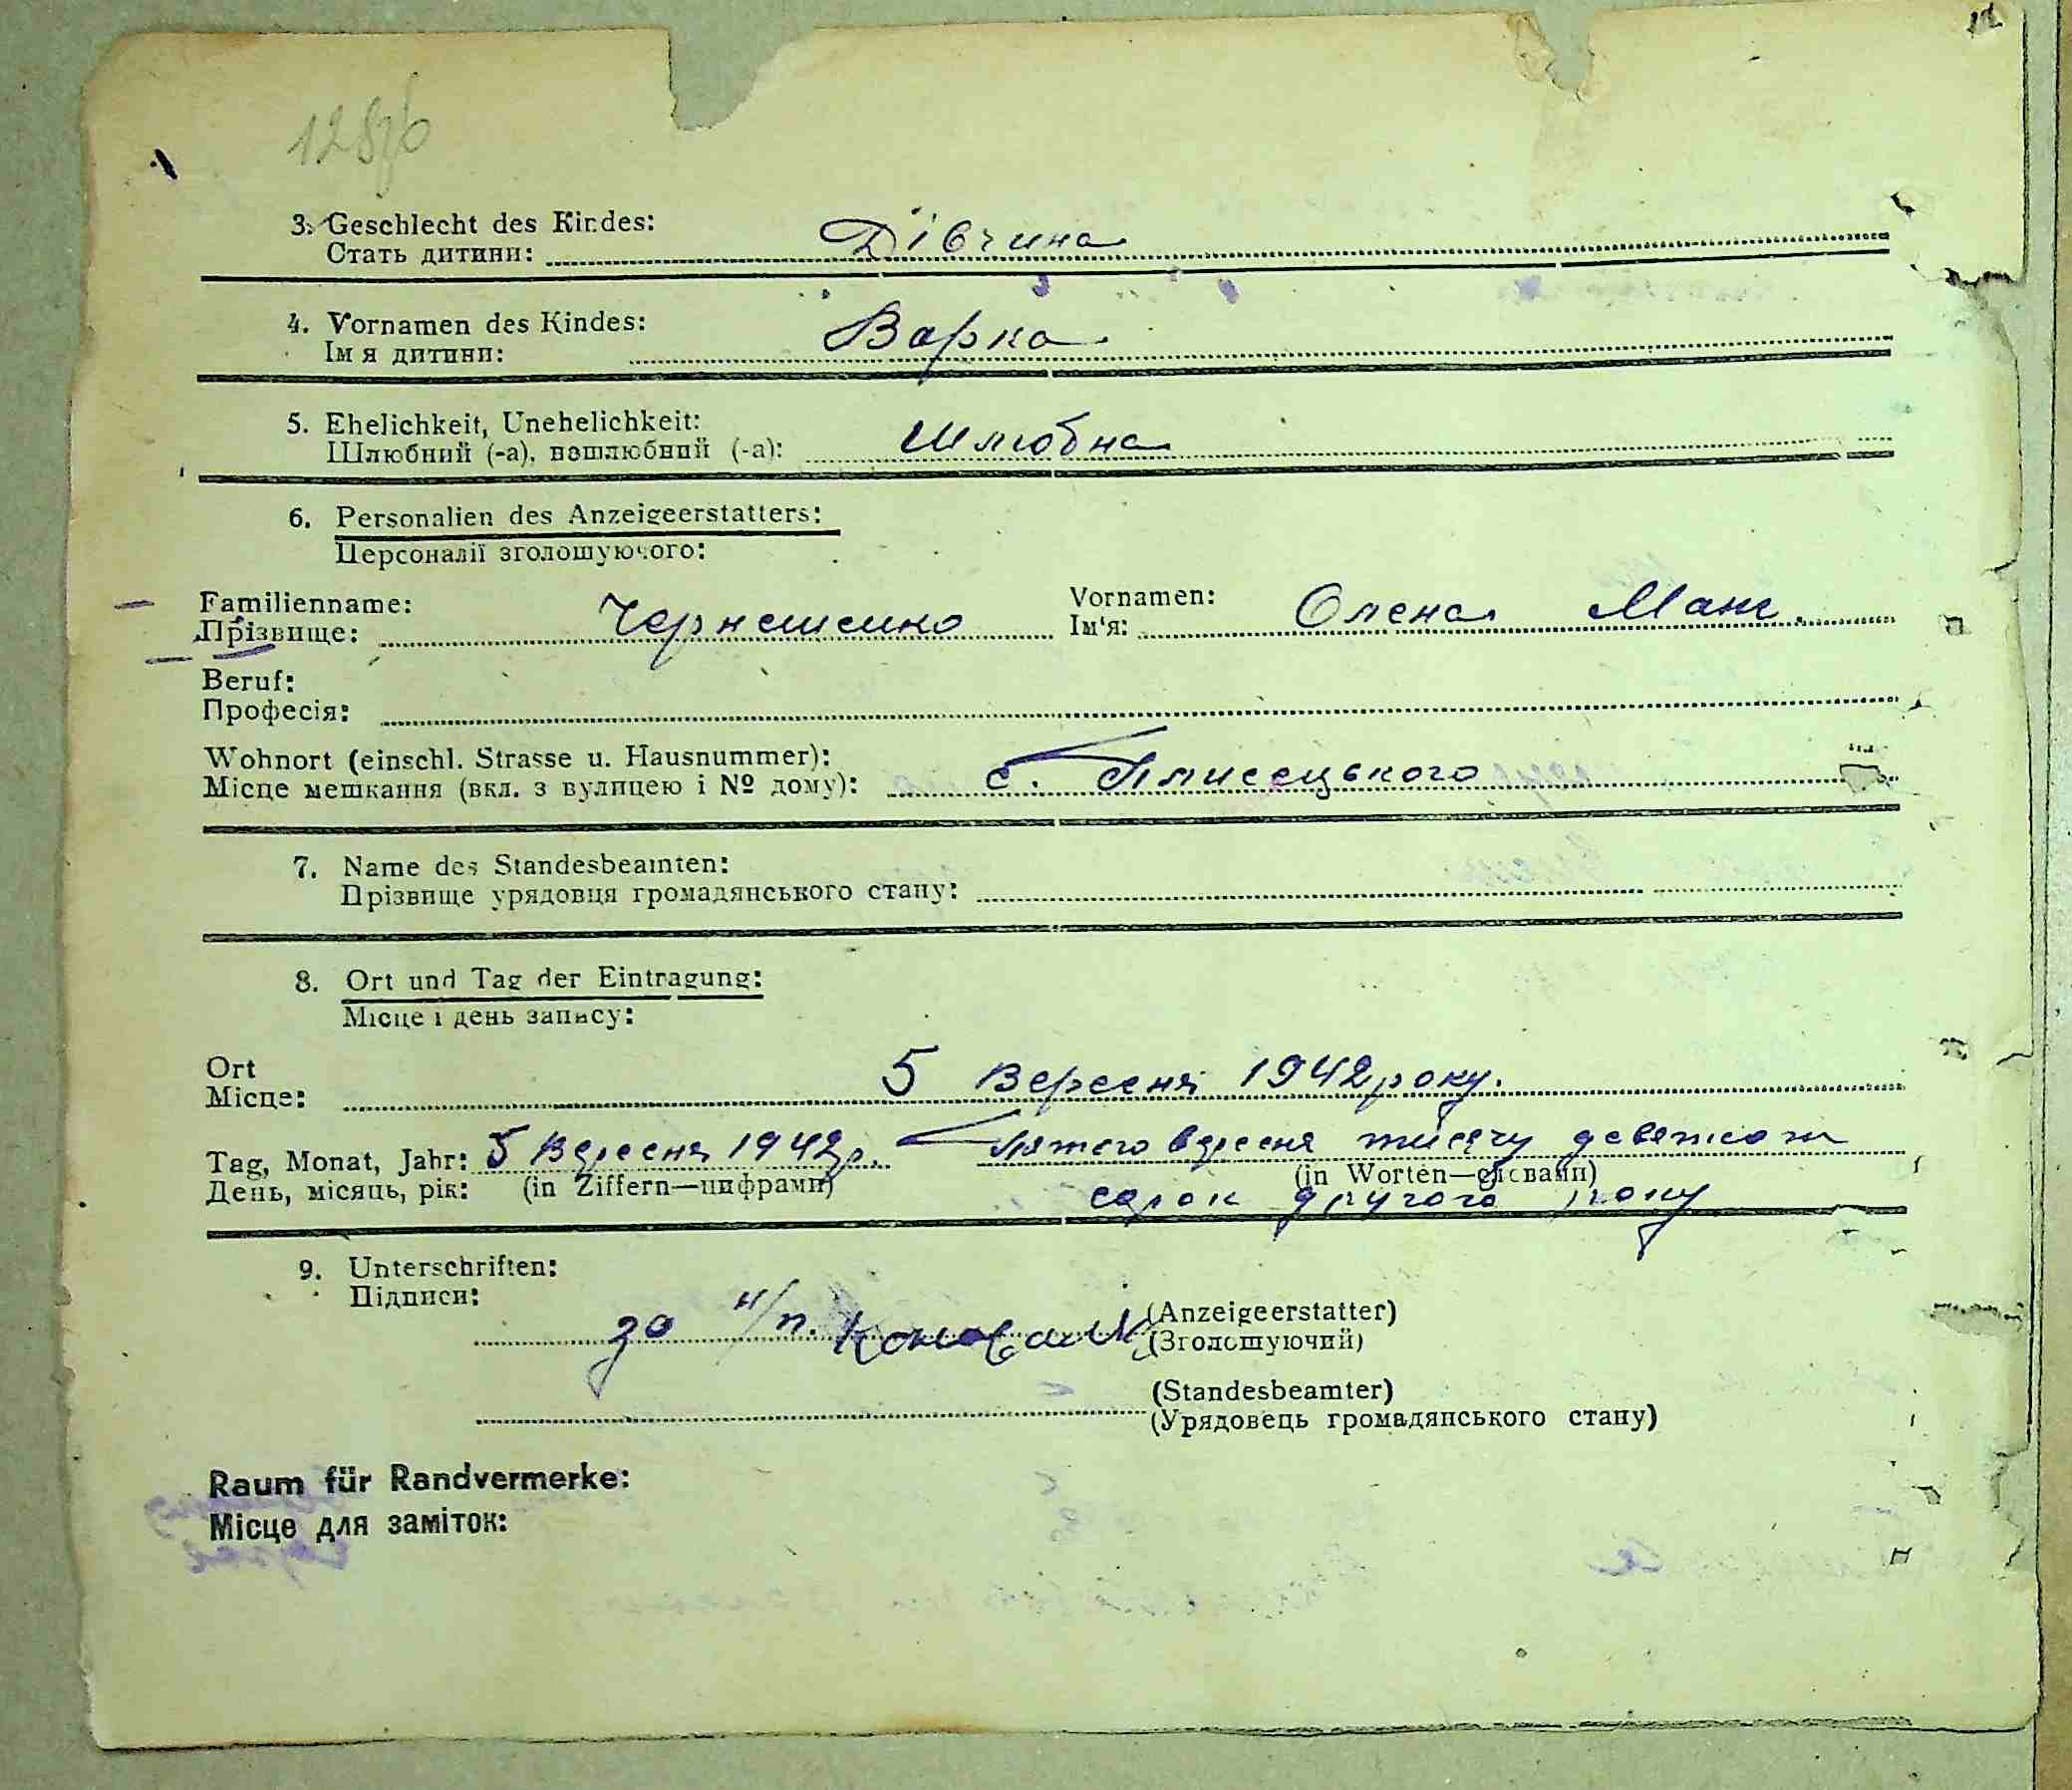 128зв
3. Geschlecht des Kindes:
Стать дитини: Дівчина
4. Vornamen des Kindes:
Імя дитини: Варка
5. Ehelichkeit, Unehelichkeit:
Шлюбний (-а), нешлюбний (-а): Шлюбна
6. Personalien des Anzeigeerstatters:
Персоналії зголошуючого:
Familienname: Vornamen:
Прізвище: Чернешенко Ім'я: Олена
Beruf:
Професія:
Wohnort (einschl. Strasse u. Hausnummer):
Місце мешкання (вкл. з вулицею і № дому): с. Плисецького
7. Name des Standesbeamten:
Прізвище урядовця громадянського стану:
8. Ort und Tag der Eintragung:
Місце і день запису:
Ort
Місце: 5 Вересня 1942 року.
Tag, Monat, Jahr: 5 Вересня 1942р. Пятого вересня тисячу девятсот
День, місяць, рік: (in Ziffern—цифрами) (in Worten—словами)
сорок другого року
9. Unterschriften:
Підписи:
за н/п. (Anzeigeerstatter)
(Зголошуючий)
(Standesbeamter)
(Урядовець громадянського стану)
Raum für Randvermerke:
Місце для заміток: